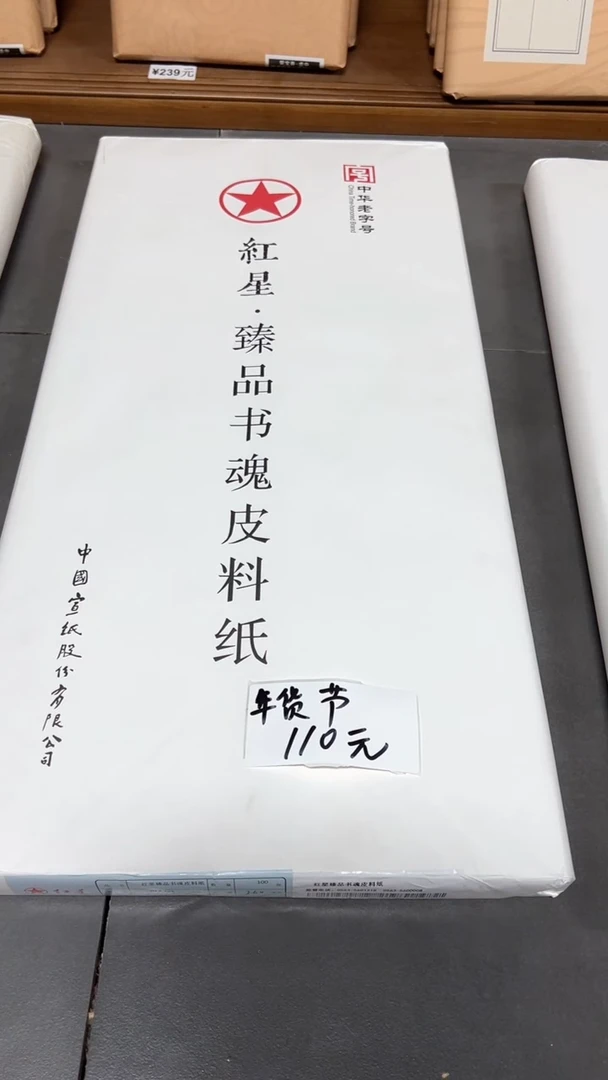 ¥239元
中华老字号
China Time-honored Brand
紅星·臻品书魂皮料纸
中國宣纸股份有限公司
年货节
110元
红星臻品书魂皮料纸
100
红星臻品书魂皮料纸